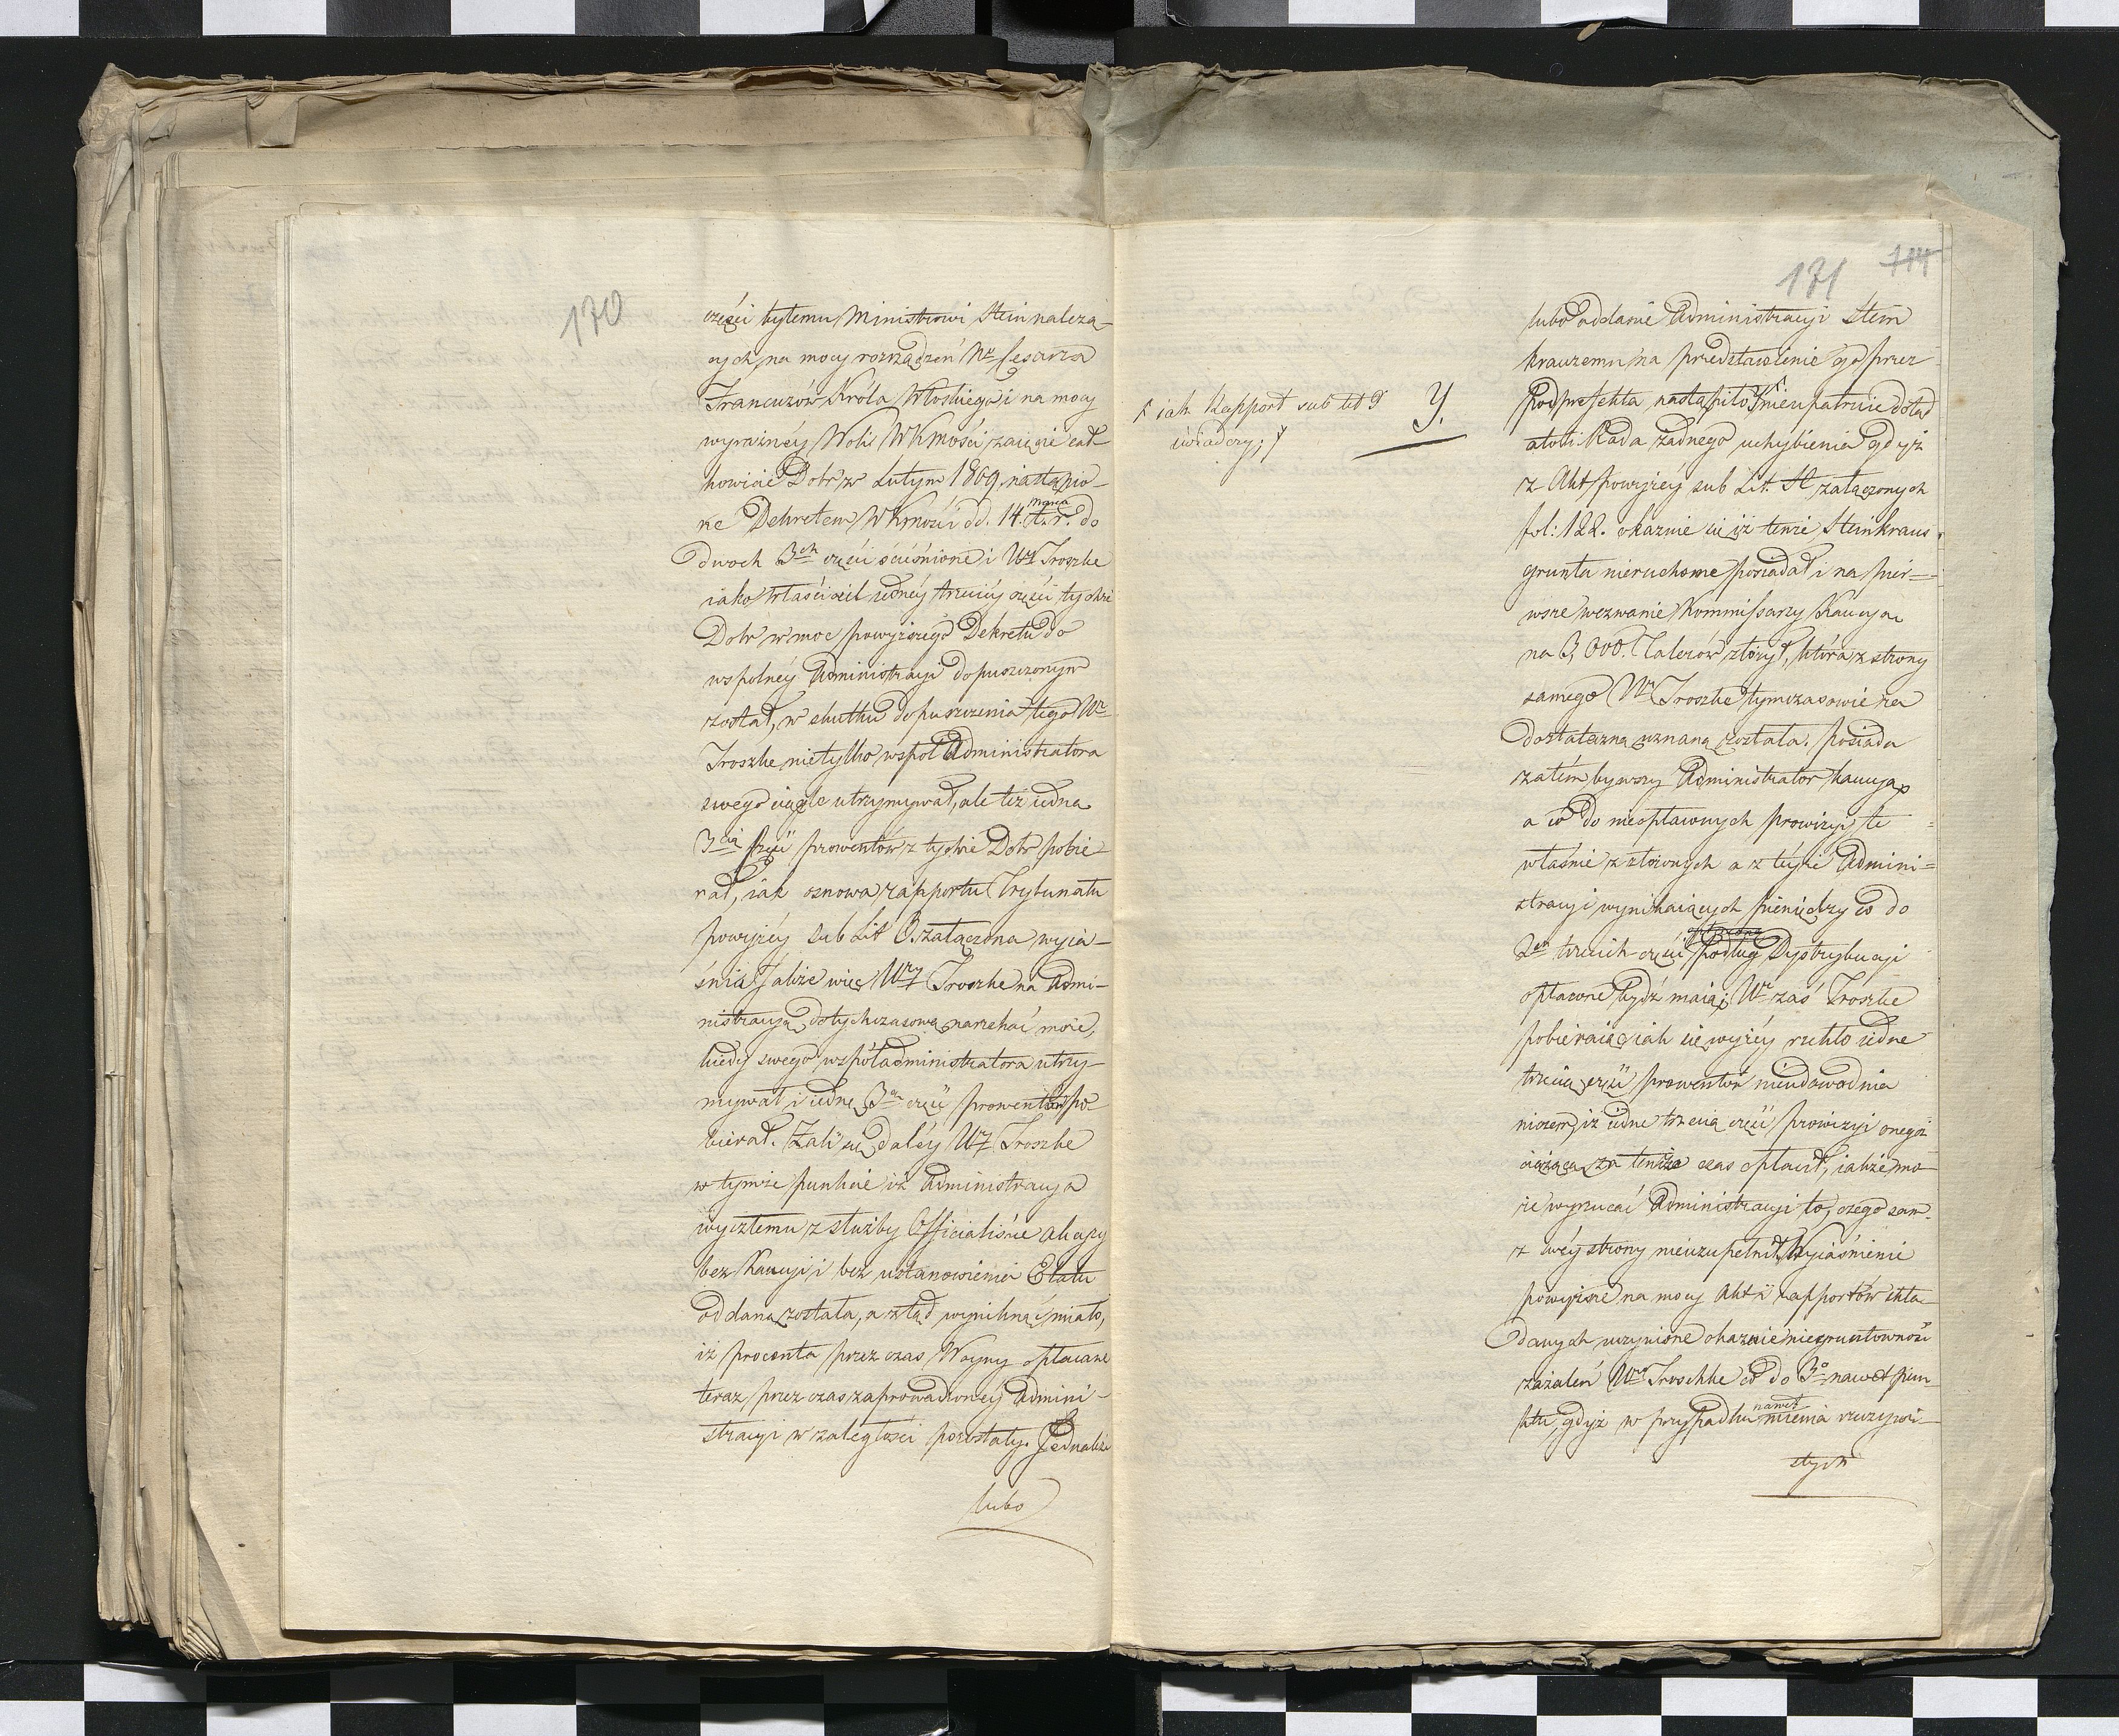 170
części byłemu Ministrowi Stein należą-
cych, na mocy rozrządzeń Nu Cesarza
Francuzów Króla Włoskiego i na mocy
wyraźnéy Woli WKmości zaięcie cał-
kowicie Dobr w Lutym 1809 nastąpio-
ne Dekretem WKmości dd. 14. marca t. r. do
dwoch 3ch części ściśnione i Ur Troszke
iako właściciel iednéy trzeciéy części tychże
Dobr w moc powyższego Dekretu do
wspolnéy Administracyi dopuszczonym
został, w skutku dopuszczenia tego Ur
Troszke nietylko wspoł Administratora
swego ciągle utrzymywał, ale też iedna
3cią część prowentów z tychże Dobr pobie-
rał, iak osnowa rapportu Trybunału
powyżéy sub Lit B. załączona wyia-
śnia. Jakże więc Ur Troszke na Admi-
nistracyą dotychczasową narzekać może,
kiedy swego współadministratora utrzy-
mywał i iednę 3cią część prowentów po-
bierał. Żali się daléy Ur Troszke
w tymże punkcie iż Administracya
wyszłemu z służby Officialiście
bez Kaucyi i bez ustanowienia Etatu
oddana została, a ztąd wyniknąć miało,
iż procenta przez czas Woyny opłacane
teraz, przez czas zaprowadzonéy Admini-
stracyi w zaległości pozostały. Jednakże
lubo
171
714
lubo oddanie Administracyi Stein
krauzemu na przedstawienie go przez
Podprefekta nastąpiło, nieupatruie dotąd
atoli Rada żadnego uchybienia gdyż
z Akt powyżéy sub Lit. A załączonych
fol: 122. okazuie się iż tenże Steinkraus
grunta nieruchome posiadał i na pier-
wsze wezwanie Kommissarzy Kaucyą
na 3,000. Talerów złożył, która z strony
samego Ur Troszke tymczasowie za
dostateczną uznaną została. posiada
zatém bywszy Administrator kaucyą
a co do nieopłaconych prowizyi te
właśnie z złożonych a z téyże Admini-
stracyi wynikaiących pieniędzy co do
2ch trzecich części podług Dystrybucyi
opłacone bydź maią; Ur zaś Troszke
pobieraiąc iak się wyżéy rzekło iedne
trzecią część prowentów nieudowodnia
niczem, iż iedne trzecią część prowizyi onegoż
ciążącą za tenże czas opłacił, iakże mo-
że wyrzucać Administracyi to, czego sam
z swéy strony nieuzupełnił. Wyiaśnienie
powyższe na mocy Akt i rapportów skła-
danych uczynione okazuie niegruntowność
zażaleń Ur Troschke co do 3o nawet pun-
ktu, gdyż w przypadku nawet mienia rzeczywi-
stych
iak Rapport sub lit Y
świadczy;
Y.